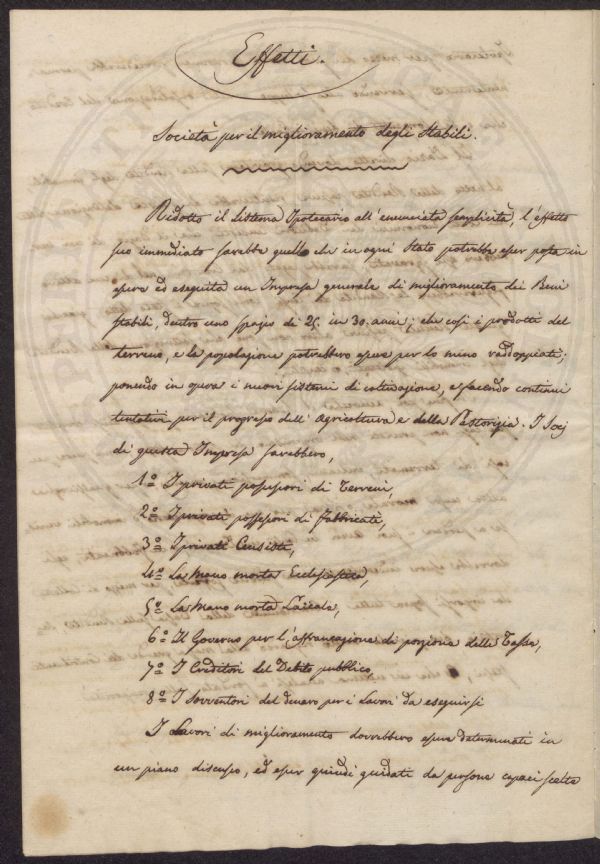 Effetti.
Società per il miglioramento degli Stabili.
Ridotto il Sistema Ipotecario all'enunciata semplicità, l'effetto
suo immediato sarebbe quello che in ogni Stato potrebbe esser posta in
opera ed eseguita un Impresa generale di miglioramento dei Beni
stabili, dentro uno spazio di 25. in 30. anni; che così i prodotti del
terreno, e la popolazione potrebbero essere per lo meno raddoppiati;
ponendo in opera i nuovi sistemi di coltivazione, e facendo continui
tentativi per il progresso dell'Agricoltura e della Pastorizia. I Socj
di questa Impresa sarebbero,
1º I privati possessori di Terreni,
2º I privati possessori di Fabbricati,
3º I privati Censisti,
4º La Mano morta Ecclesiastica,
5º La Mano morta Laicale,
6º Il Governo per l'affrancazione di porzione delle Tasse,
7º I Creditori del Debito pubblico,
8º I Sovventori del denaro per i Lavori da eseguirsi
I Lavori di miglioramento dovrebbero essere determinati in
un piano discusso, ed esser quindi guidati da persone capaci scelte